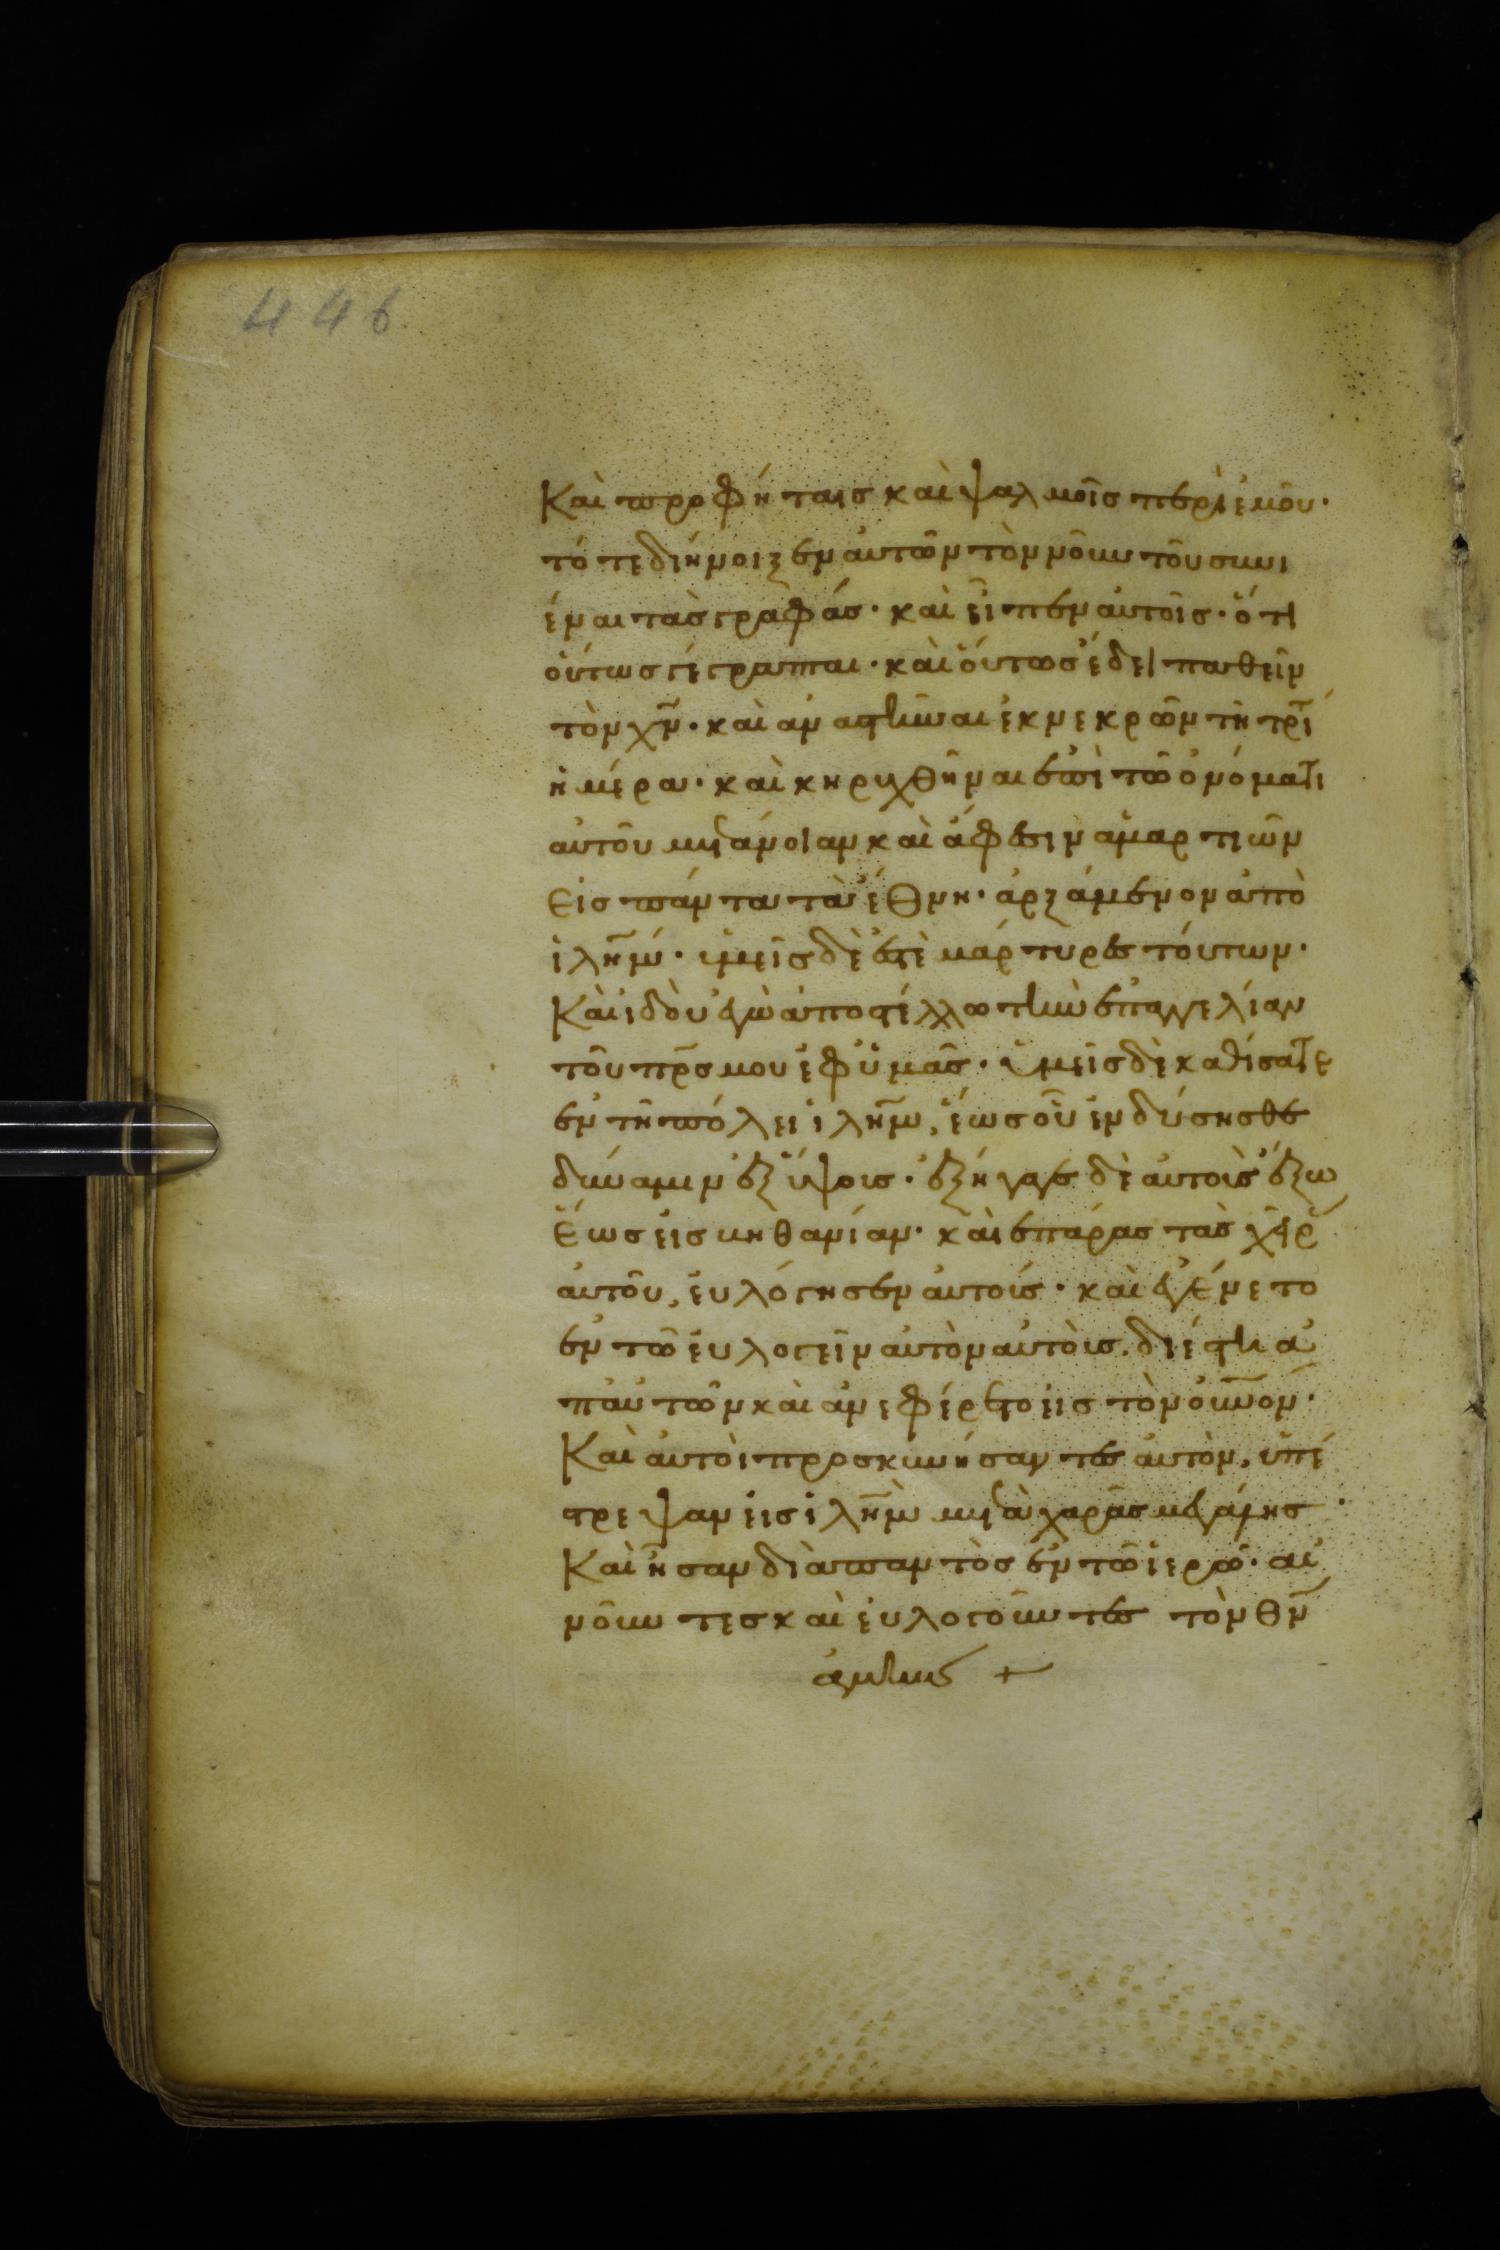 446
Καὶ προφήταις καὶ ψαλμοῖς περὶ ἐμοῦ·
τότε διήνοιξεν αὐτῶν τὸν νοῦν τοῦ συνι
έναι τὰς γραφάς· καὶ εἶπεν αὐτοῖς· ὅτι
οὕτως γέγραπται· καὶ οὕτως ἔδει παθεῖν
τὸν χν̄· καὶ αναστῆναι ἐκ νεκρῶν τῆ τρί
ἡμέρα· καὶ κηρυχθῆναι ἐπὶ τῶ ὀνόματι
αὐτοῦ μετάνοιαν καὶ ἄφεσιν ἁμαρτιῶν
εἰς πάντα τὰ ἔθνη· ἀρξάμενον ἀπὸ
ἱλη̄μ· ὑμεῖς δὲ ἐστὲ μάρτυρες τούτων·
Καὶ ἰδοὺ ἐγὼ ἀποστέλλω τὴν ἐπαγγελίαν
τοῦ πρ̄ς μου ἐφ ὑμᾶς· ὑμεῖς δὲ καθίσατε
ἐν τῆ πόλει ἱλη̄μ, ἕως οὗ ἐνδύσησθε
δύναμιν ἐξ ὕψοις· ἐξήγαγε δὲ αὐτοὺς ἔξω
Ἕως εἰς βηθανίαν· καὶ ἐπάρας τὰς χεῖρ
αὐτοῦ, εὐλόγησεν αὐτοίς· καὶ ἐγένετο
ἐν τῶ εὐλογεῖν αὐτὸν αὐτοὺς, διέστη ἀ
π' αὐτῶν καὶ ἀνεφέρετο εἰς τὸν οὐν̄ον·
Καὶ ἀυτοὶ προσκυνήσαντες ἀυτὸν, ὑπέ
στρεψαν εἰς ἱλη̄μ μετὰ χαρᾶς μεγάλης·
Καὶ ἦσαν διὰ παντὸς ἐν τῶ ἱερῶ· αἰ
νοῦντες καὶ εὐλογοῦντες τὸν θν̄
ἀμήν +